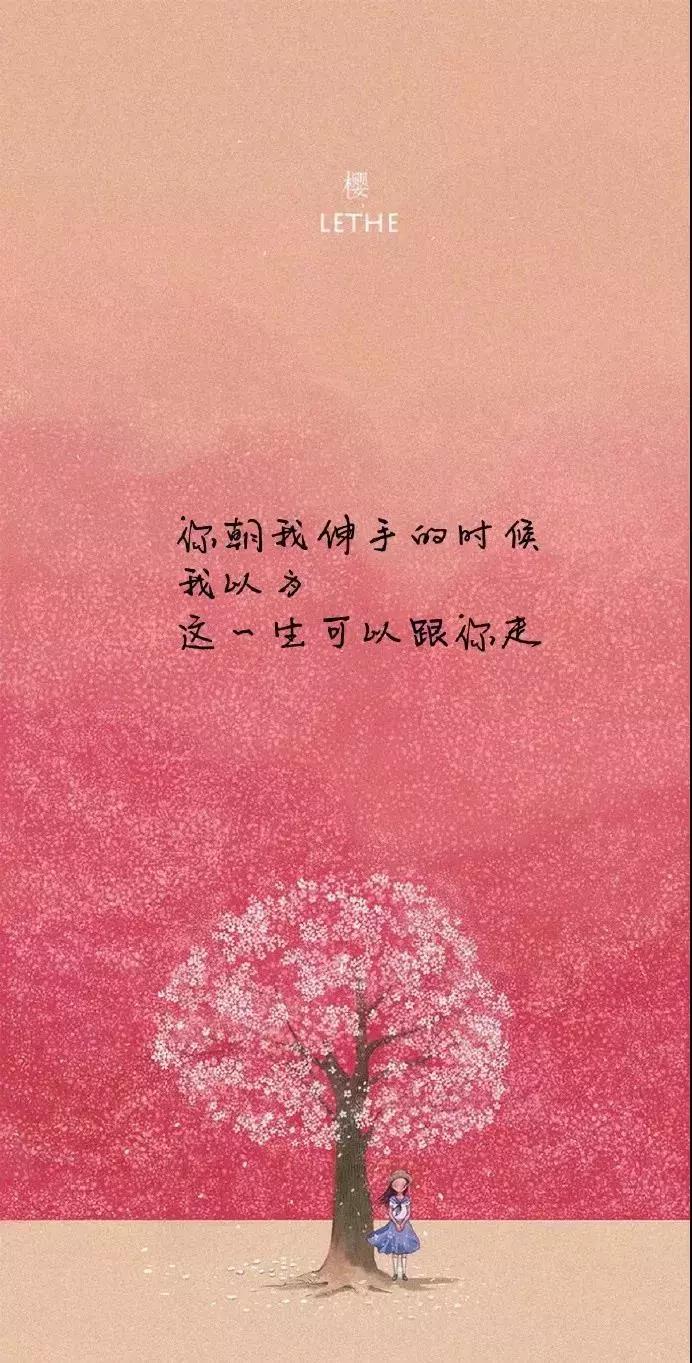 樱
LETHE
你朝我伸手的时候
我以为
这一生可以跟你走